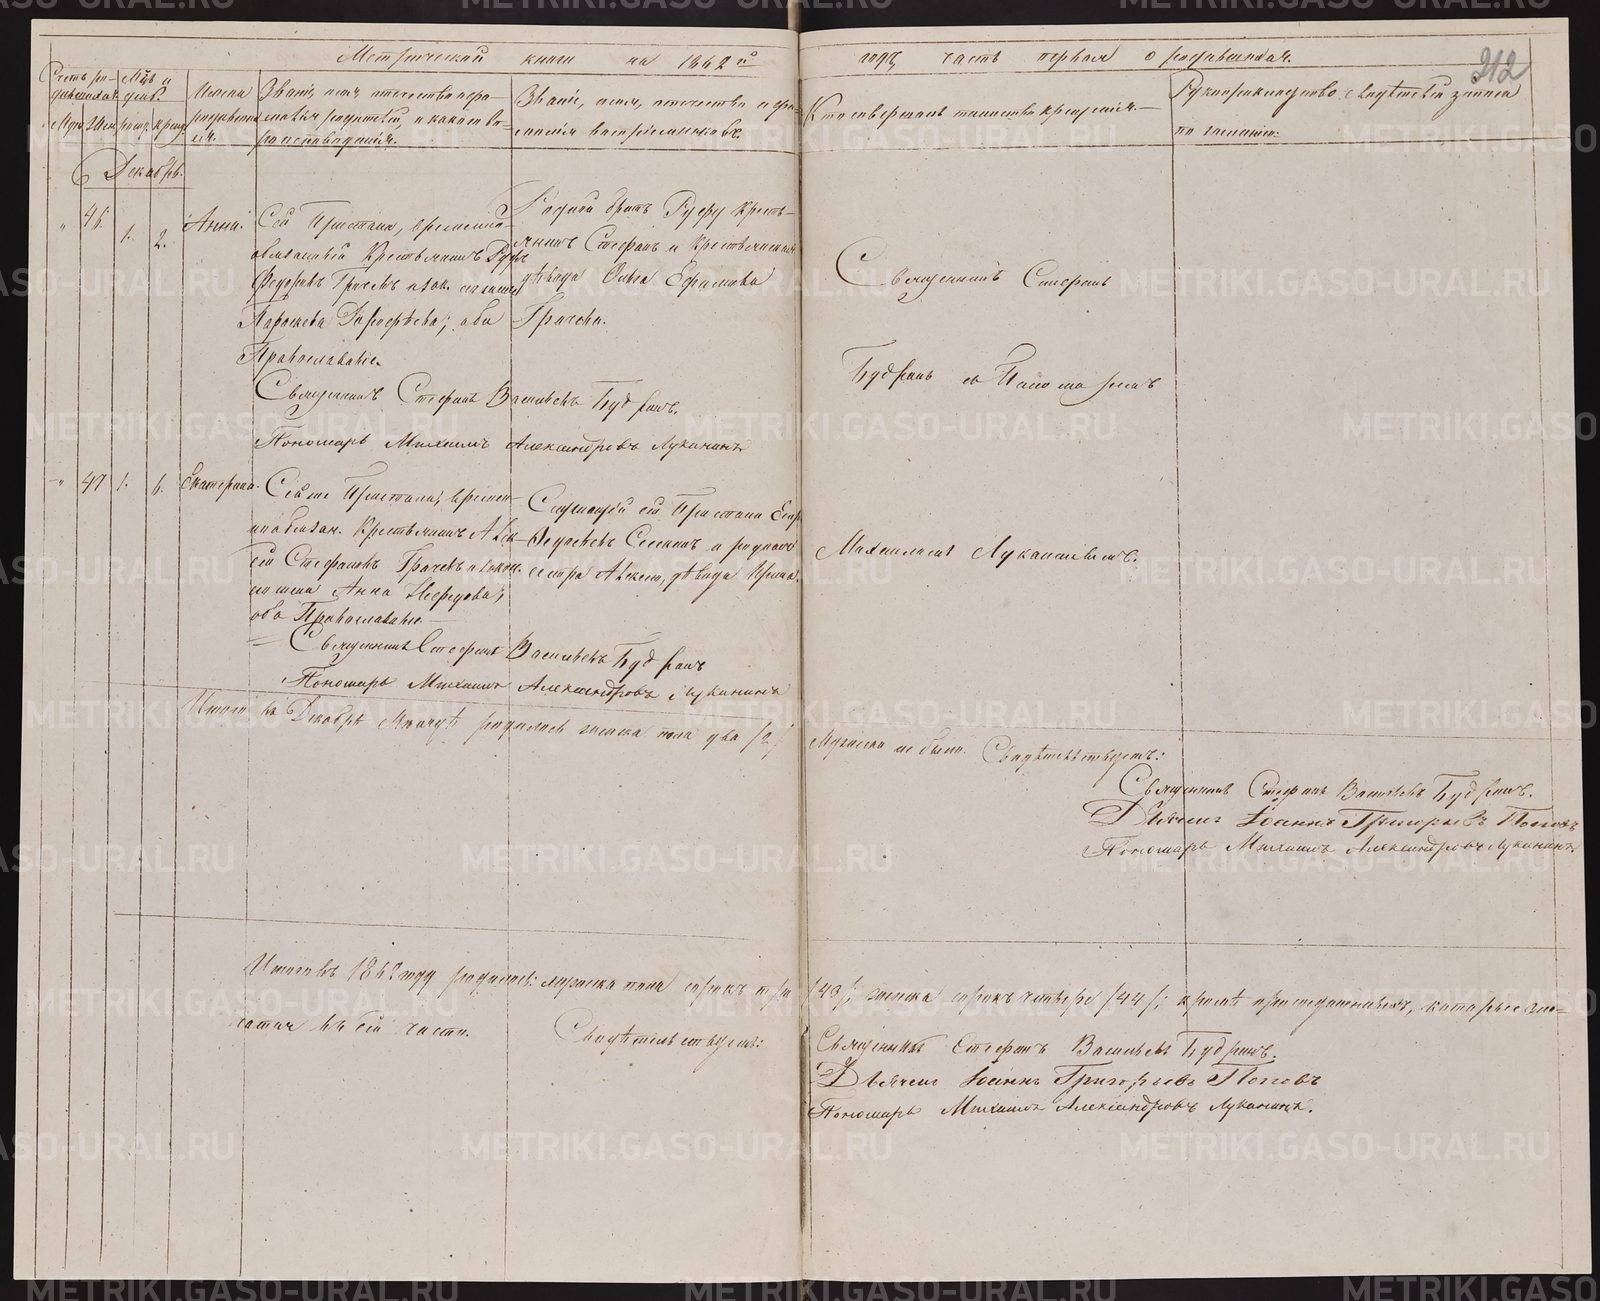 Метрической книги на 1862й годъ, часть первая о родившихся.
212
Счетъ родившихся.
Мѣс. и день.
Имена родившихся.
Званіе, имя, отечество и фамилія родителей, и какого вѣроисповѣданія.
Званіе, имя, отечество и фамилія воспріемниковъ.
Кто совершалъ таинство крещенія.
Рукоприкладство свидѣтелей записи по желанію.
Муж. Жен. рожд. крещ.
Декабрь.
" 46. 1. 2. Анна.
Сей Пристани, временно-
обязанный Крестьянинъ Руфъ
Федоровъ Грачевъ и зак. его жена
Параскева Дорофѣева; оба
Православные.
Родной братъ Руфу Кресть-
янинъ Стефанъ и Крестьянская
дѣвица Ольга Ефимова
Грачева.
Священникъ Стефанъ
Будринъ съ Пономаремъ
Священникъ Стефанъ Васильевъ Будринъ.
Пономарь Михаилъ Александровъ Луканинъ
" 47 1. 6. Екатерина.
Сей же Пристани, времен-
нообязан. Крестьянинъ Алек-
сѣй Стефановъ Грачевъ и закон.
его жена Анна
оба Православные
Пристани
сестра Алексѣя, дѣвица Ирина.
Михаиломъ Луканинымъ.
Священникъ Стефанъ Васильевъ Будринъ
Пономарь Михаилъ Александровъ Луканинъ
Итого въ Декабрѣ Мѣсяцѣ родилось женска пола два /2/
Мужеска не было. Свидѣтельствуемъ:
Священникъ Стефанъ Васильевъ Будринъ.
Дьячекъ Іоаннъ Григорьевъ Поповъ
Пономарь Михаилъ Александровъ Луканинъ.
Итого въ 1862 году родилось: мужеска пола сорокъ три /43/; женска сорокъ четыре /44/;
въ сей части. Свидѣтельствуемъ:
Священникъ Стефанъ Васильевъ Будринъ.
Дьячекъ Іоаннъ Григорьевъ Поповъ
Пономарь Михаилъ Александровъ Луканинъ.
METRIKI.GASO-URAL.RU